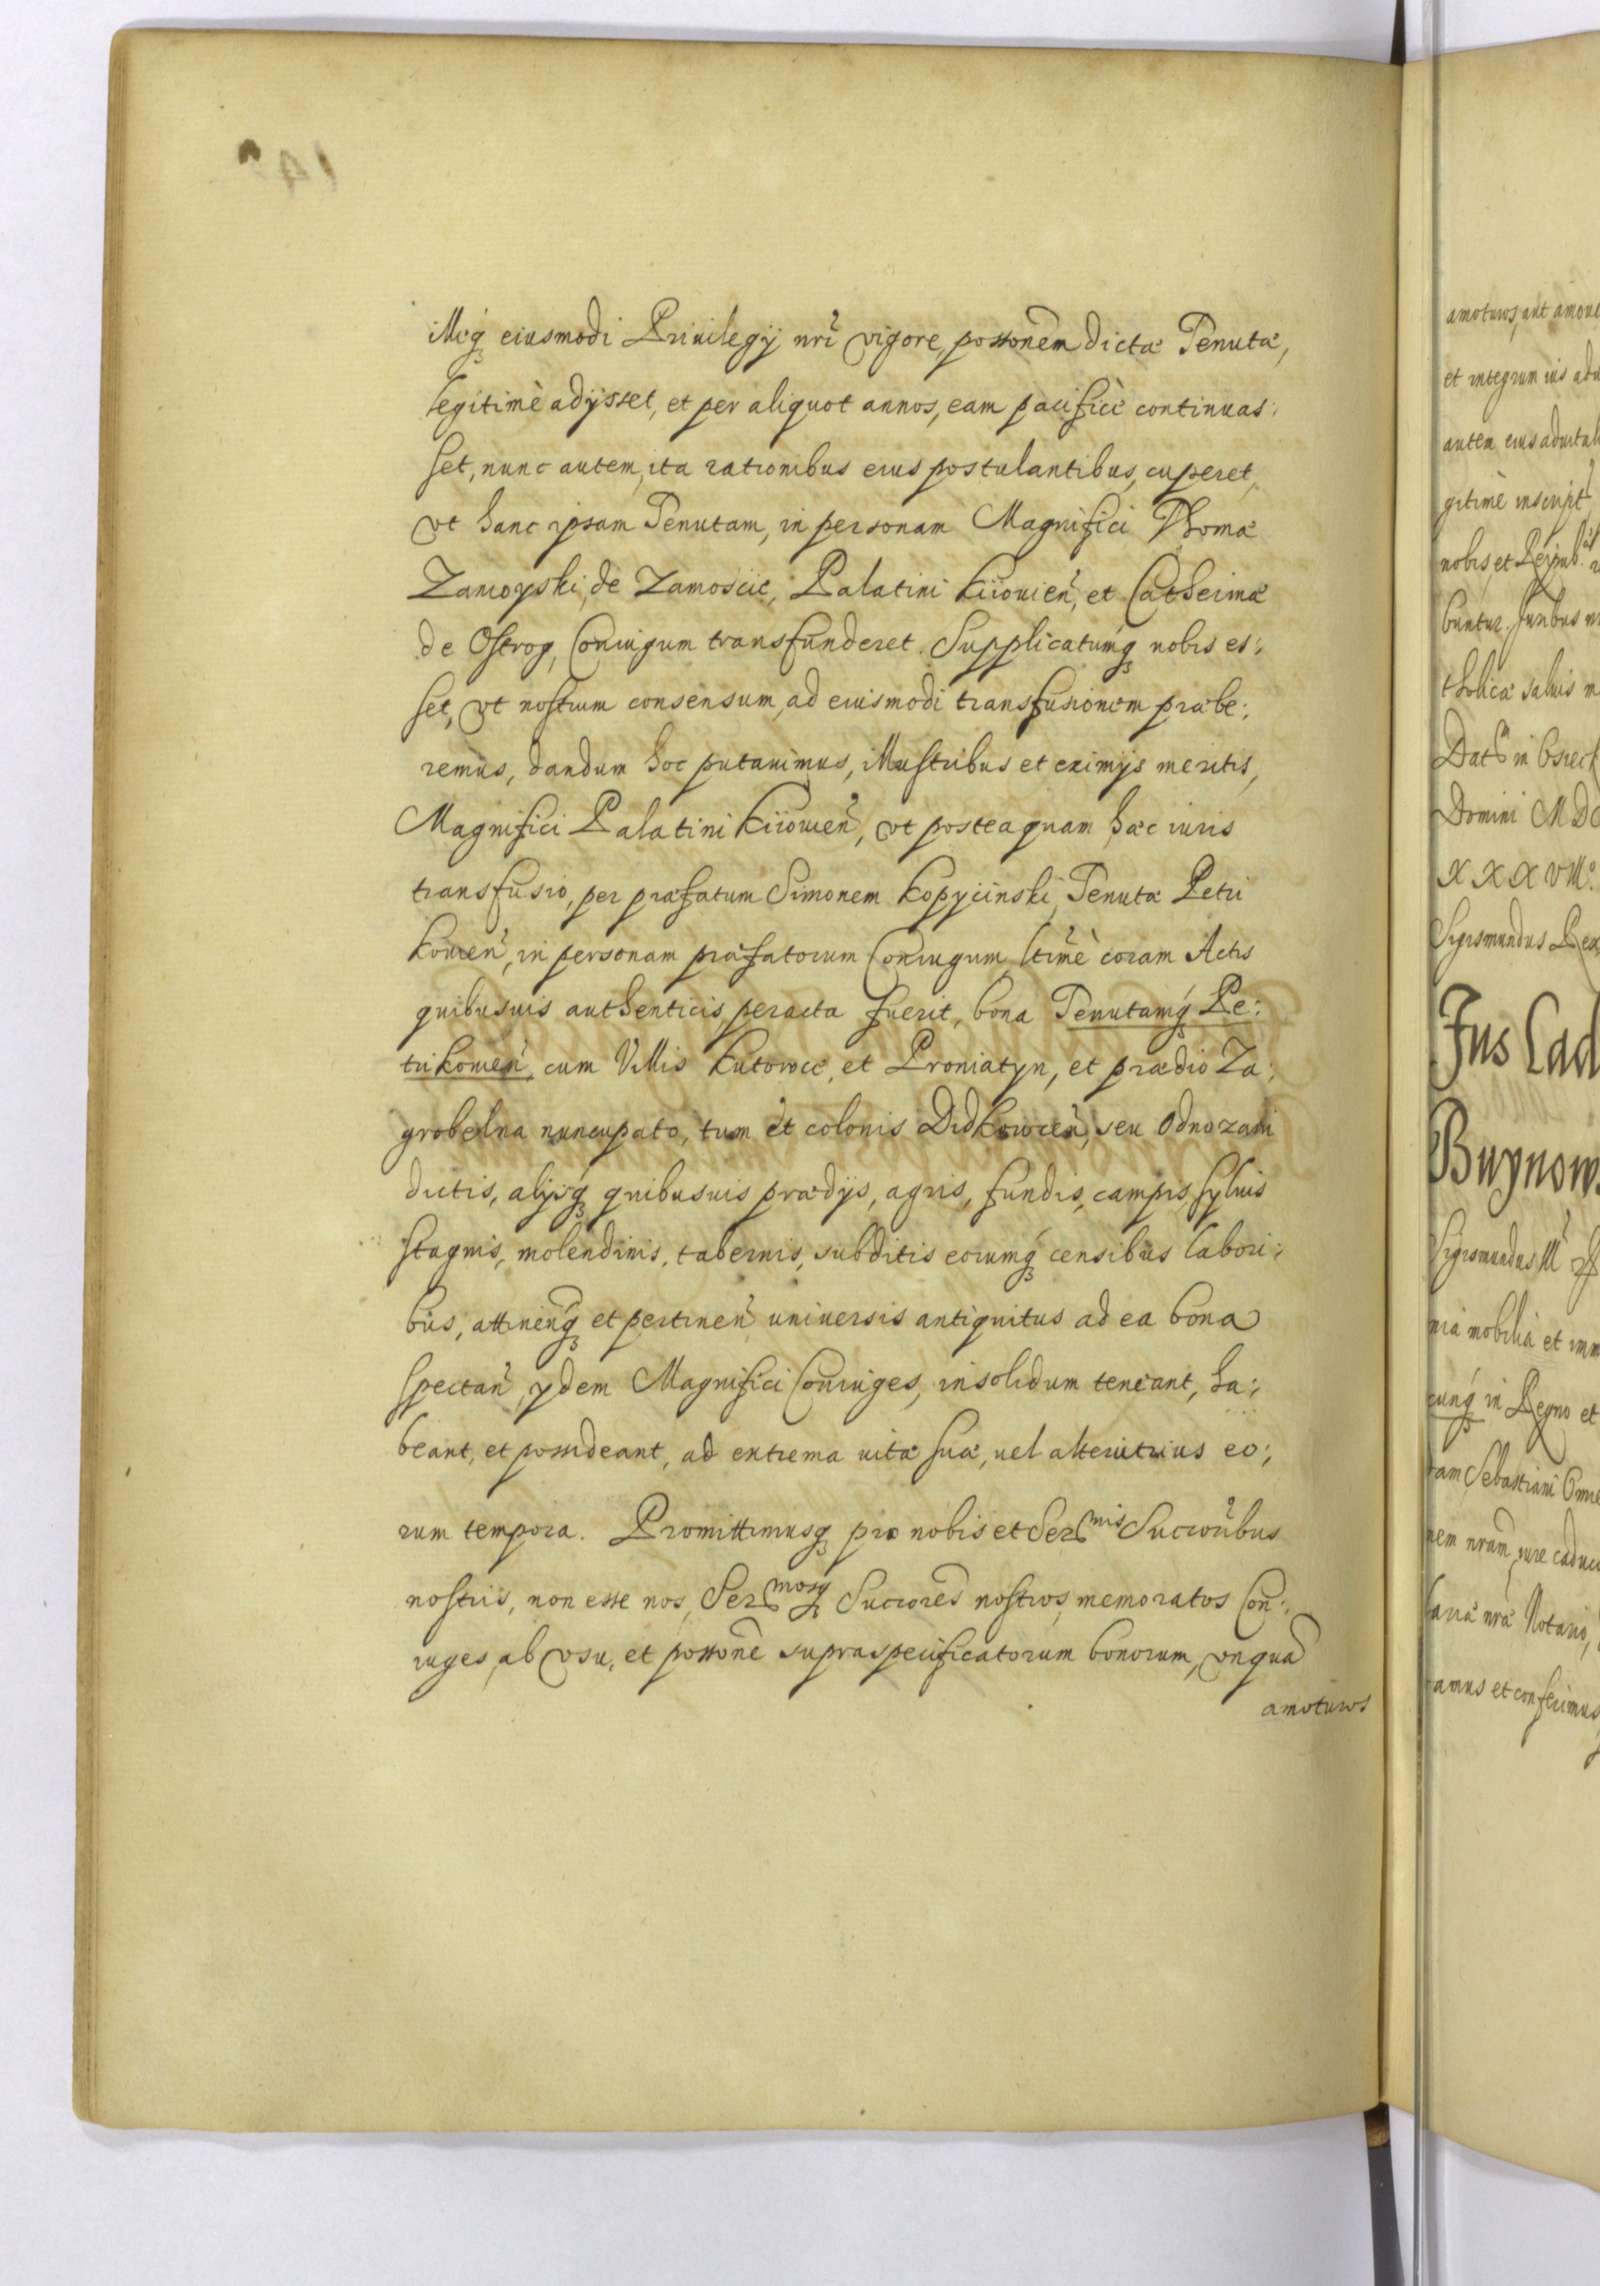 illeq₃ eiusmodi Priuilegÿ nrĩ vigore, possonẽm dictæ Tenutæ,
legitimè adÿsset, et per aliquot annos, eam pacificè continuas:
set, nunc autem, ita rationibus eius postulantibus, cuperet,
vt hanc ipsam Tenutam, in personam Magnifici Thomæ
Zamoyski, de Zamoscie, Palatini Kiiouieñ, et Catherinæ
de Ostrog, Coniugum transfunderet. Supplicatumq₃ nobis es:
set, vt nostrum consensum, ad eiusmodi transfusionem præbe:
remus, dandum hoc putauimus, illustribus et eximÿs meritis,
Magnifici Palatini Kiiouieñ, vt posteaquam hæc iuris
transfusio, per præfatum Simonem Kopycinski, Tenutæ Petri
kouieñ, in personam præfatorum Coniugum, ltimẽ coram Actis
quibusuis authenticis peracta fuerit, bona Tenutamq₃ Pe:
trikouieñ, cum Villis Kutowce, et Proniatyn, et prædio Za:
grobelna nuncupato, tum et colonis Didkowceñ, seu Odnozani
dictis, alÿsq₃ quibusuis prædÿs, agris, fundis, campis, syluis
stagnis, molendinis, tabernis, subditis eorumq₃ censibus labori:
bus, attineñq₃ et pertineñ uniuersis antiquitus ad ea bona
spectañ, ydem Magnifici Coniuges, insolidum teneant, ha:
beant, et possideant, ad extrema uitæ suæ, uel alterutrius eo:
rum tempora. Promittimusq₃ pro nobis et Serᵐⁱˢ Succoribus
nostris, non esse nos, Serᵐᵒˢq₃ Succores nostros, memoratos Con:
iuges, ab vsu, et possonẽ supraspecificatorum bonorum, vnquã
amoturos
amoturos, aut
et integrum ius
gitimè
nobis, et
tholicæ saluis
Domini MDC
Sigismundus Rex
Jus Cad
Buynow
Sigismundus
nia mobilia et
in Regno et
Sebastiani
Notario,
amus et conferimus